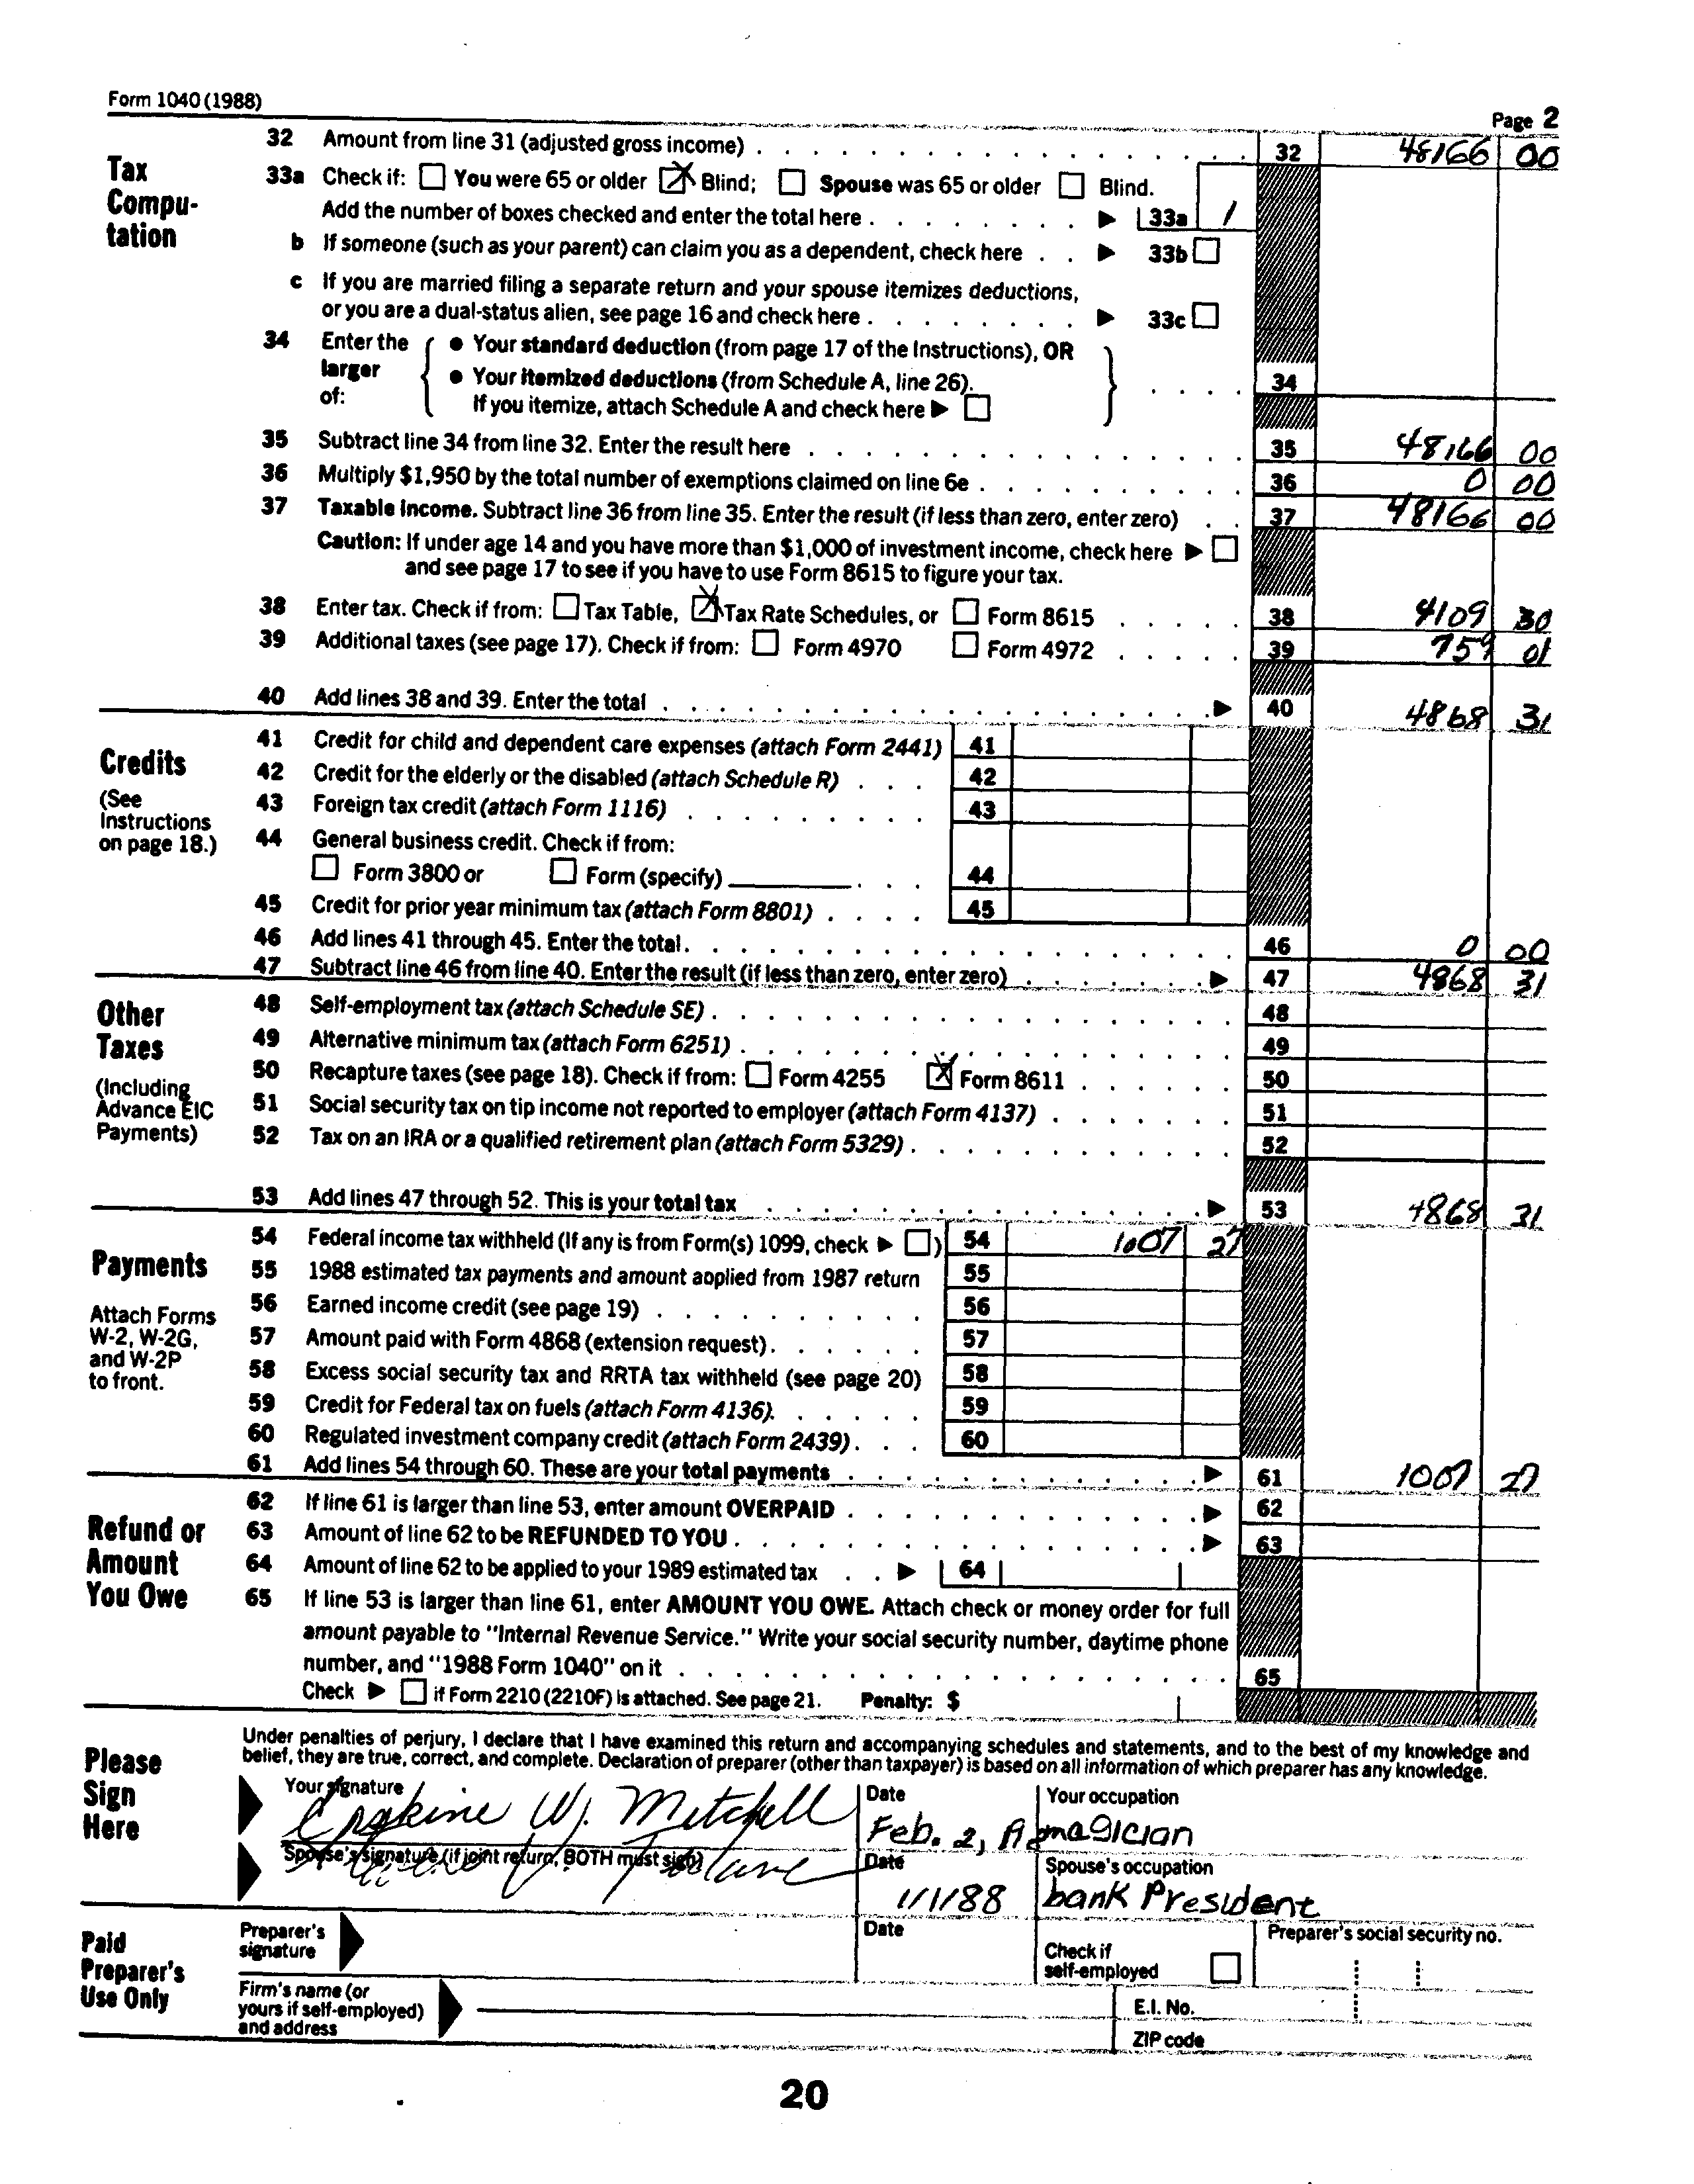 Form 1040 (1988)
Page 2
Tax Computation
32 Amount from line 31 (adjusted gross income) 32 48166 00
33a Check if: You were 65 or older Blind; Spouse was 65 or older Blind.
Add the number of boxes checked and enter the total here 33a 1
b If someone (such as your parent) can claim you as a dependent, check here 33b
c If you are married filing a separate return and your spouse itemizes deductions,
or you are a dual-status alien, see page 16 and check here 33c
34 Enter the larger of:
• Your standard deduction (from page 17 of the Instructions), OR
• Your itemized deductions (from Schedule A, line 26).
If you itemize, attach Schedule A and check here
34
35 Subtract line 34 from line 32. Enter the result here 35 48166 00
36 Multiply $1,950 by the total number of exemptions claimed on line 6e 36 0 00
37 Taxable income. Subtract line 36 from line 35. Enter the result (if less than zero, enter zero) 37 48166 00
Caution: If under age 14 and you have more than $1,000 of investment income, check here
and see page 17 to see if you have to use Form 8615 to figure your tax.
38 Enter tax. Check if from: Tax Table, X Tax Rate Schedules, or Form 8615 38 4109 30
39 Additional taxes (see page 17). Check if from: Form 4970 Form 4972 39 759 01
40 Add lines 38 and 39. Enter the total 40 4868 31
Credits
(See Instructions on page 18.)
41 Credit for child and dependent care expenses (attach Form 2441) 41
42 Credit for the elderly or the disabled (attach Schedule R) 42
43 Foreign tax credit (attach Form 1116) 43
44 General business credit. Check if from:
Form 3800 or Form (specify) 44
45 Credit for prior year minimum tax (attach Form 8801) 45
46 Add lines 41 through 45. Enter the total. 46 0 00
47 Subtract line 46 from line 40. Enter the result (if less than zero, enter zero) 47 4868 31
Other Taxes
(Including Advance EIC Payments)
48 Self-employment tax (attach Schedule SE) 48
49 Alternative minimum tax (attach Form 6251) 49
50 Recapture taxes (see page 18). Check if from: Form 4255 X Form 8611 50
51 Social security tax on tip income not reported to employer (attach Form 4137) 51
52 Tax on an IRA or a qualified retirement plan (attach Form 5329) 52
53 Add lines 47 through 52. This is your total tax 53 4868 31
Payments
Attach Forms W-2, W-2G, and W-2P to front.
54 Federal income tax withheld (If any is from Form(s) 1099, check ) 54 1007 27
55 1988 estimated tax payments and amount applied from 1987 return 55
56 Earned income credit (see page 19) 56
57 Amount paid with Form 4868 (extension request) 57
58 Excess social security tax and RRTA tax withheld (see page 20) 58
59 Credit for Federal tax on fuels (attach Form 4136) 59
60 Regulated investment company credit (attach Form 2439) 60
61 Add lines 54 through 60. These are your total payments 61 1007 27
Refund or Amount You Owe
62 If line 61 is larger than line 53, enter amount OVERPAID 62
63 Amount of line 62 to be REFUNDED TO YOU 63
64 Amount of line 62 to be applied to your 1989 estimated tax 64
65 If line 53 is larger than line 61, enter AMOUNT YOU OWE. Attach check or money order for full
amount payable to "Internal Revenue Service." Write your social security number, daytime phone
number, and "1988 Form 1040" on it 65
Check if Form 2210 (2210F) is attached. See page 21. Penalty: $
Please Sign Here
Under penalties of perjury, I declare that I have examined this return and accompanying schedules and statements, and to the best of my knowledge and
belief, they are true, correct, and complete. Declaration of preparer (other than taxpayer) is based on all information of which preparer has any knowledge.
Your signature Erskine W. Mitchell Date Feb. 2, Your occupation magician
Spouse's signature (if joint return, BOTH must sign) Date 1/1/88 Spouse's occupation bank President
Paid Preparer's Use Only
Preparer's signature Date Check if self-employed Preparer's social security no.
Firm's name (or yours if self-employed) and address E.I. No.
ZIP code
20